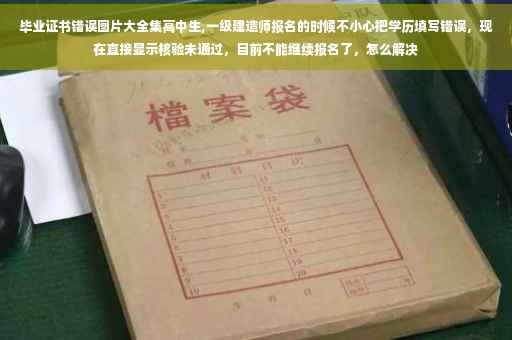 毕业证书错误图片大全集高中生,一级建造师报名的时候不小心把学历填写错误，现
在直接显示核验未通过，目前不能继续报名了，怎么解决
檔案袋
材料目次
1 11
2 12
3 13
4 14
5 15
6 16
7 17
8 18
9 19
10 20
年 月 日